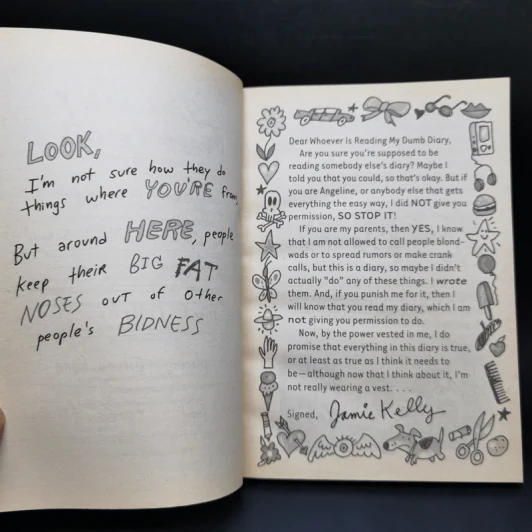 LOOK,
I'm not sure how they do
things where YOU'RE from,
But around HERE, people
keep their BIG FAT
NOSES out of other
people's BIDNESS
Dear Whoever Is Reading My Dumb Diary,
Are you sure you're supposed to be
reading somebody else's diary? Maybe I
told you that you could, so that's okay. But if
you are Angeline, or anybody else that gets
everything the easy way, I did NOT give you
permission, SO STOP IT!
If you are my parents, then YES, I know
that I am not allowed to call people blond-
wads or to spread rumors or make crank
calls, but this is a diary, so maybe I didn't
actually "do" any of these things. I wrote
them. And, if you punish me for it, then I
will know that you read my diary, which I am
not giving you permission to do.
Now, by the power vested in me, I do
promise that everything in this diary is true,
or at least as true as I think it needs to
be—although now that I think about it, I'm
not really wearing a vest. . . .
Signed, Jamie Kelly